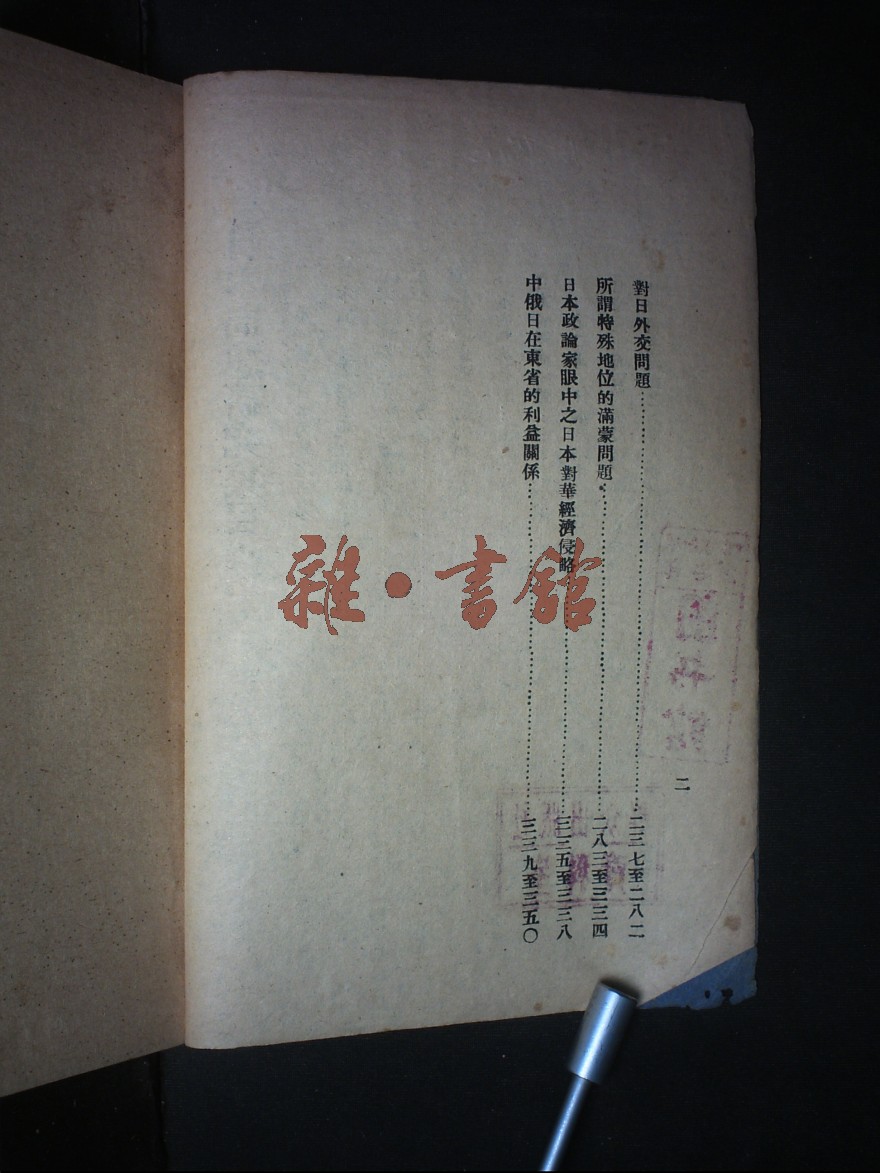 二
對日外交問題……二三七至二八二
所謂特殊地位的滿蒙問題……二八三至三二四
日本政論家眼中之日本對華經濟侵略……三二五至三三八
中俄日在東省的利益關係……三三九至三五〇
雜·書館